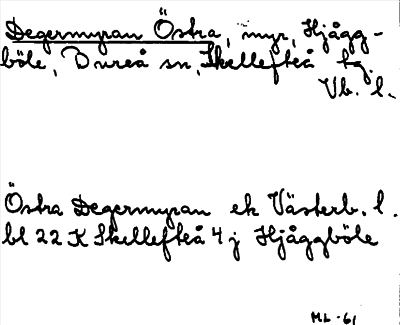 Degermyran Östra, myr, Hjågg-
böle, Bureå sn, Skellefteå tg.
Vb. l.
Östra Degermyran ek Västerb. l.
bl 22 K Skellefteå 4 j Hjåggböle
ML-61